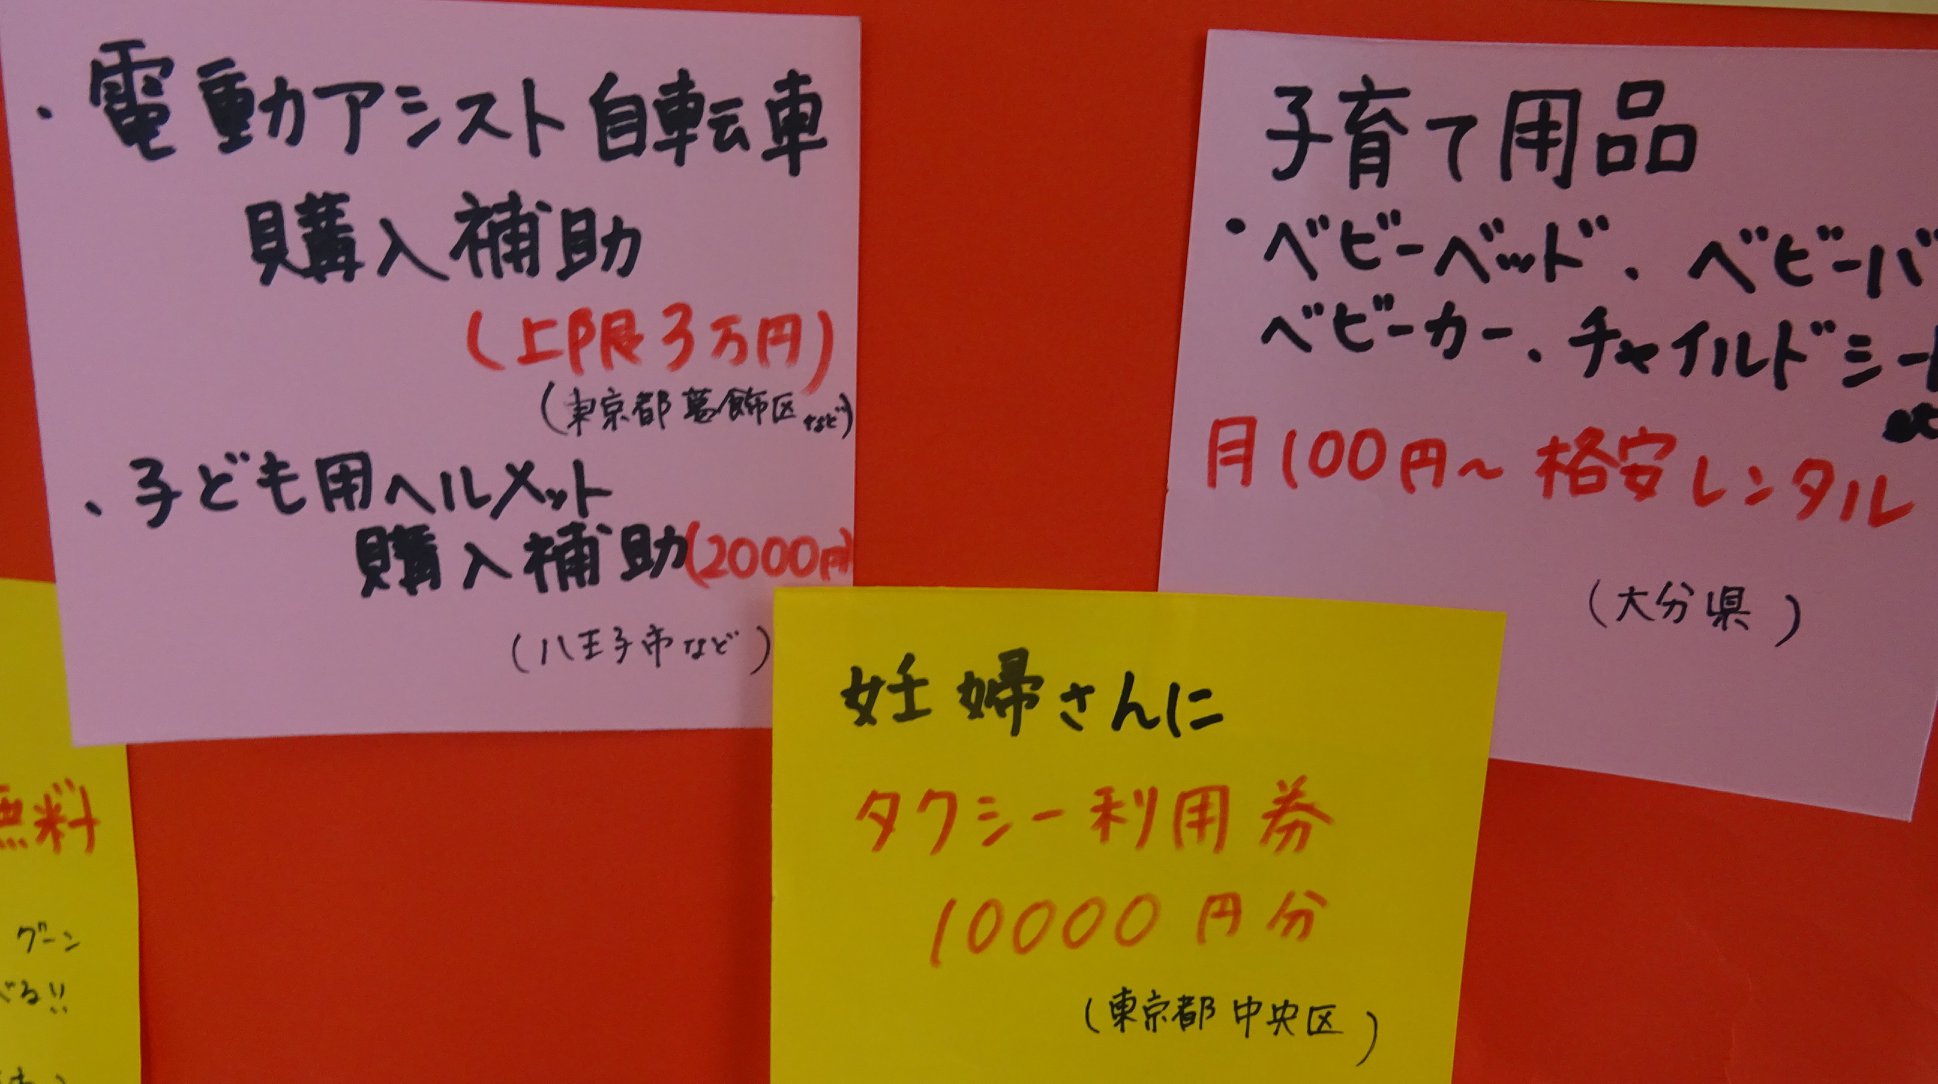 ・電動アシスト自転車
購入補助
(上限3万円)
(東京都葛飾区など)
、子ども用ヘルメット
購入補助(2000円)
(八王子市など)
子育て用品
・ベビーベッド、ベビーバ
ベビーカー、チャイルドシート
月100円〜格安レンタル
(大分県)
妊婦さんに
タクシー利用券
10000円分
(東京都中央区)
無料
グーン
べる!!